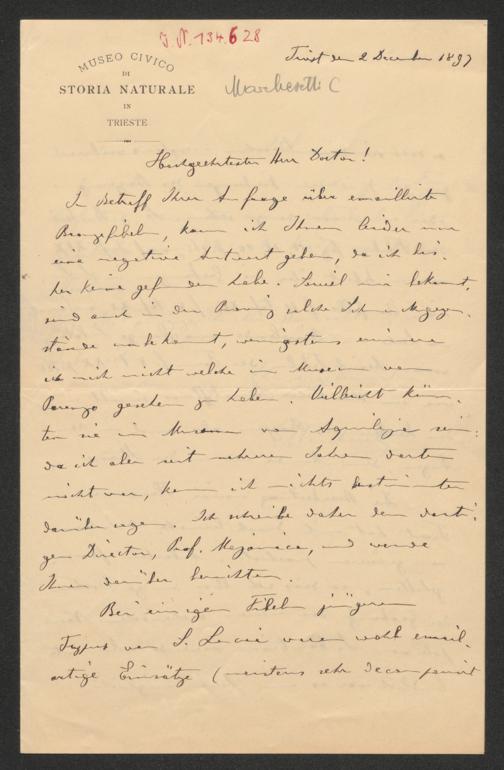 J. N. 134.628
MUSEO CIVICO
DI
STORIA NATURALE
IN
TRIESTE
Triest den 2 December 1897
Marchesetti C
Hochgeehrtester Herr Doctor!
In Betreff Ihrer Anfrage über emaillirte
Bronzefibeln, kann ich Ihnen leider nur
eine negative Antwort geben, da ich bis-
her keine gefunden habe. Soviel mir bekannt,
sind auch in der Provinz solche Schmuckgegen-
stände unbekannt, wenigstens erinnere
ich mich nicht welche im Museum von
Parenzo gesehen zu haben. Vielleicht könn-
ten sie im Museum von Aquileja sein:
da ich aber seit mehreren Jahren dorten
nicht war, kann ich nichts bestimmtes
darüber sagen. Ich schreibe daher dem dorti-
gen Director, Prof. Majonica, und werde
Ihnen darüber berichten.
Bei einigen Fibeln jüngeren
Typus von S. Lucia waren wohl email-
artige Einsätze (meistens sehr decomponirt